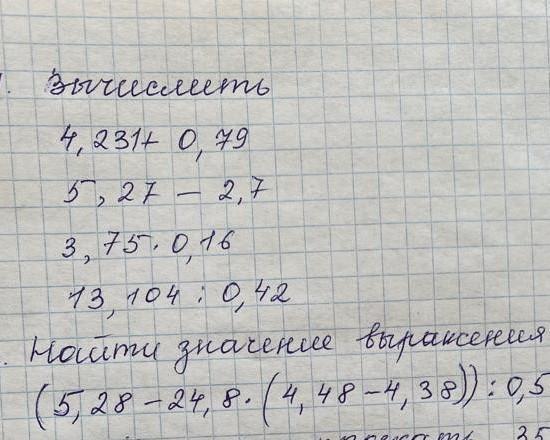 Вычислить
4,231+ 0,79
5,27 - 2,7
3,75 · 0,16
13,104 : 0,42
Найти значение выражения
(5,28 - 24,8 · (4,48 - 4,38)) : 0,5
35